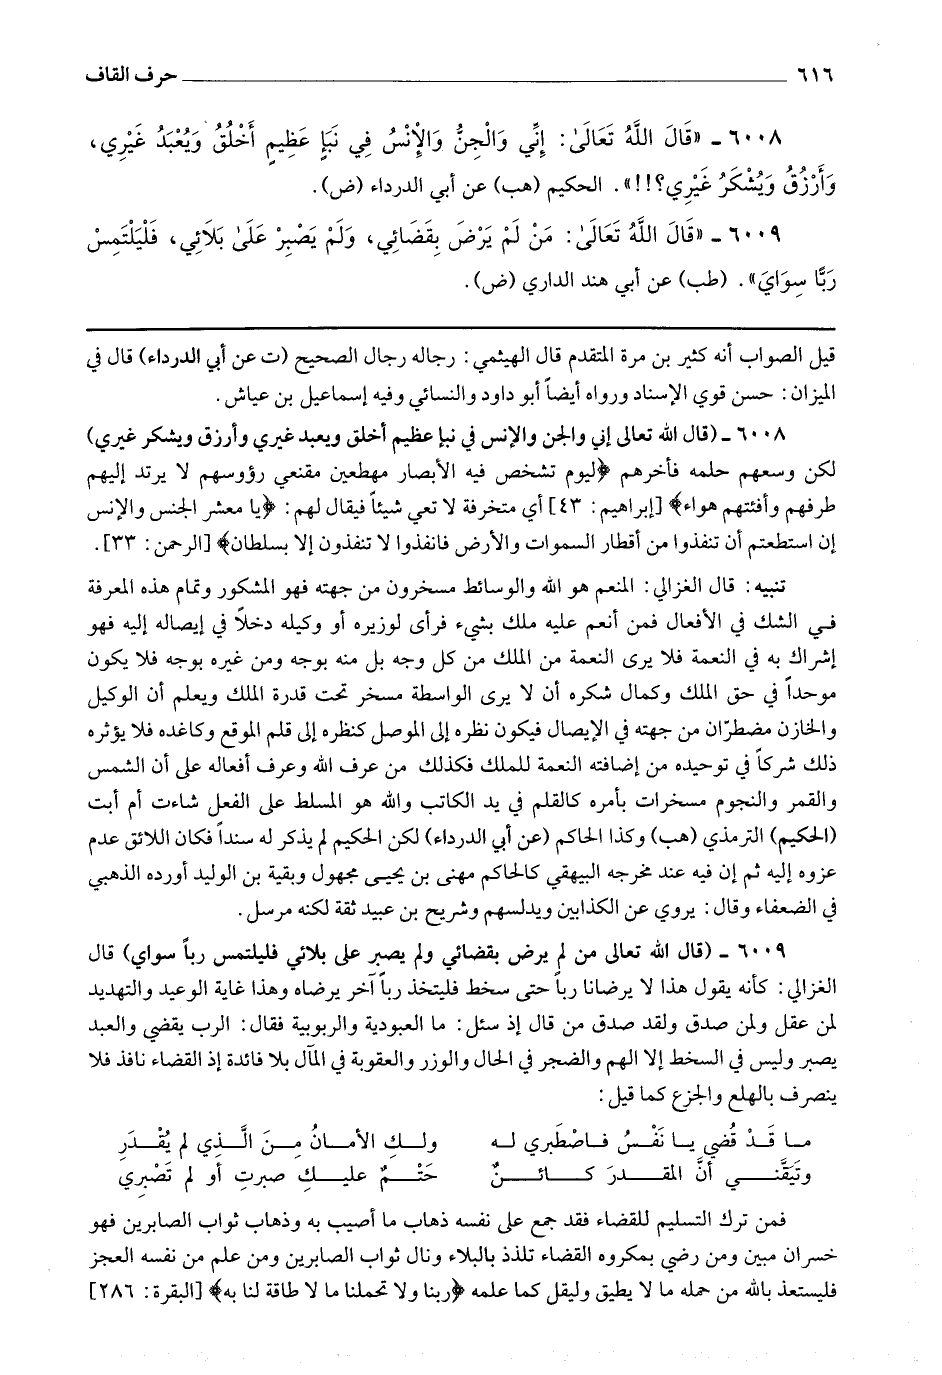 ٦١٦ حرف القاف
٦٠٠٨ ـ «قَالَ اللَّهُ تَعَالَىٰ: إِنِّي وَالْجِنُّ وَالْإِنْسُ فِي نَبَإٍ عَظِيمٍ أَخْلُقُ وَيُعْبَدُ غَيْرِي،
وَأَرْزُقُ وَيُشْكَرُ غَيْرِي؟!!!». الحكيم (هب) عن أبي الدرداء (ض).
٦٠٠٩ ـ «قَالَ اللَّهُ تَعَالَىٰ: مَنْ لَمْ يَرْضَ بِقَضَائِي، وَلَمْ يَصْبِرْ عَلَىٰ بَلَائِي، فَلْيَلْتَمِسْ
رَبًّا سِوَايَ». (طب) عن أبي هند الداري (ض).
قيل الصواب أنه كثير بن مرة المتقدم قال الهيثمي: رجاله رجال الصحيح (ت عن أبي الدرداء) قال في
الميزان: حسن قوي الإسناد ورواه أيضاً أبو داود والنسائي وفيه إسماعيل بن عياش.
٦٠٠٨ ـ (قال الله تعالى إني والجن والإنس في نبإ عظيم أخلق ويعبد غيري وأرزق ويشكر غيري)
لكن وسعهم حلمه فأخرهم ﴿ليوم تشخص فيه الأبصار مهطعين مقنعي رؤوسهم لا يرتد إليهم
طرفهم وأفئتهم هواء﴾ [إبراهيم: ٤٣] أي متخرفة لا تعي شيئاً فيقال لهم: ﴿يا معشر الجنس والإنس
إن استطعتم أن تنفذوا من أقطار السموات والأرض فانفذوا لا تنفذون إلا بسلطان﴾ [الرحمن: ٣٣].
تنبيه: قال الغزالي: المنعم هو الله والوسائط مسخرون من جهته فهو المشكور وتمام هذه المعرفة
في الشك في الأفعال فمن أنعم عليه ملك بشيء فرأى لوزيره أو وكيله دخلاً في إيصاله إليه فهو
إشراك به في النعمة فلا يرى النعمة من الملك من كل وجه بل منه بوجه ومن غيره بوجه فلا يكون
موحداً في حق الملك وكمال شكره أن لا يرى الواسطة مسخر تحت قدرة الملك ويعلم أن الوكيل
والخازن مضطرّان من جهته في الإيصال فيكون نظره إلى الموصل كنظره إلى قلم الموقع وكاغده فلا يؤثره
ذلك شركاً في توحيده من إضافته النعمة للملك فكذلك من عرف الله وعرف أفعاله على أن الشمس
والقمر والنجوم مسخرات بأمره كالقلم في يد الكاتب والله هو المسلط على الفعل شاءت أم أبت
(الحكيم) الترمذي (هب) وكذا الحاكم (عن أبي الدرداء) لكن الحكيم لم يذكر له سنداً فكان اللائق عدم
عزوه إليه ثم إن فيه عند مخرجه البيهقي كالحاكم مهنى بن يحيى مجهول وبقية بن الوليد أورده الذهبي
في الضعفاء وقال: يروي عن الكذابين ويدلسهم وشريح بن عبيد ثقة لكنه مرسل.
٦٠٠٩ ـ (قال الله تعالى من لم يرض بقضائي ولم يصبر على بلائي فليلتمس رباً سواي) قال
الغزالي: كأنه يقول هذا لا يرضانا رباً حتى سخط فليتخذ رباً آخر يرضاه وهذا غاية الوعيد والتهديد
لمن عقل ولمن صدق ولقد صدق من قال إذ سئل: ما العبودية والربوبية فقال: الرب يقضي والعبد
يصبر وليس في السخط إلا الهم والضجر في الحال والوزر والعقوبة في المآل بلا فائدة إذ القضاء نافذ فلا
ينصرف بالهلع والجزع كما قيل:
ما قَدْ قُضي يا نَفْسُ فاصْطَبري له ولكِ الأمانُ مِنَ الَّذِي لم يُقْدَرِ
وتَيَقَّني أنَّ المقدرَ كائنٌ حَتْمٌ عليكِ صبرتِ أو لم تَصْبِري
فمن ترك التسليم للقضاء فقد جمع على نفسه ذهاب ما أصيب به وذهاب ثواب الصابرين فهو
خسران مبين ومن رضي بمكروه القضاء تلذذ بالبلاء ونال ثواب الصابرين ومن علم من نفسه العجز
فليستعذ بالله من حمله ما لا يطيق وليقل كما علمه ﴿ربنا ولا تحملنا ما لا طاقة لنا به﴾ [البقرة: ٢٨٦]